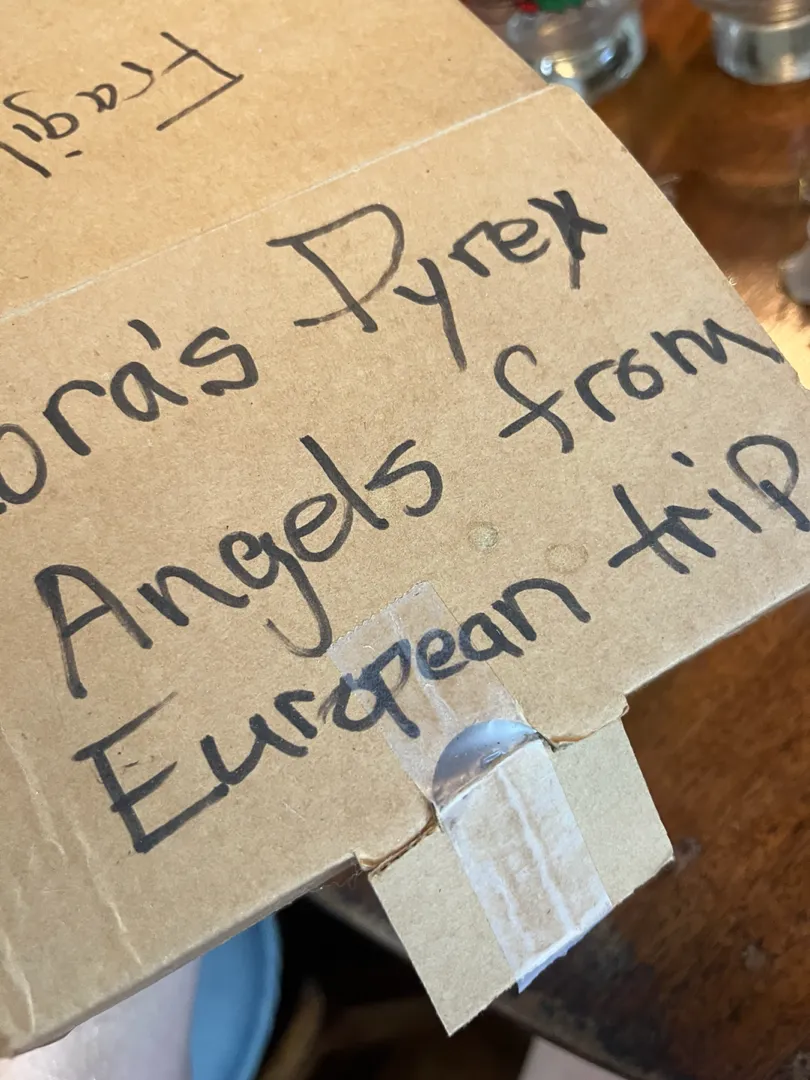 Fragil
ora's Pyrex
Angels from
European trip